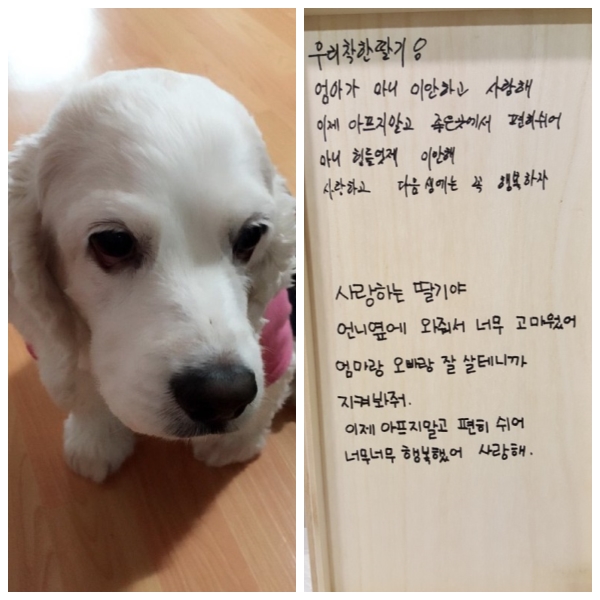 우리착한딸기♡
엄마가 마니 미안하고 사랑해
이제 아프지말고 좋은곳에서 편히쉬어
마니 힘들엇제 미안해
사랑하고 다음생에는 꼭 행복하자
사랑하는 딸기야
언니옆에 와줘서 너무 고마웠어
엄마랑 오빠랑 잘 살테니까
지켜봐줘.
이제 아프지말고 편히 쉬어
너무너무 행복했어 사랑해.